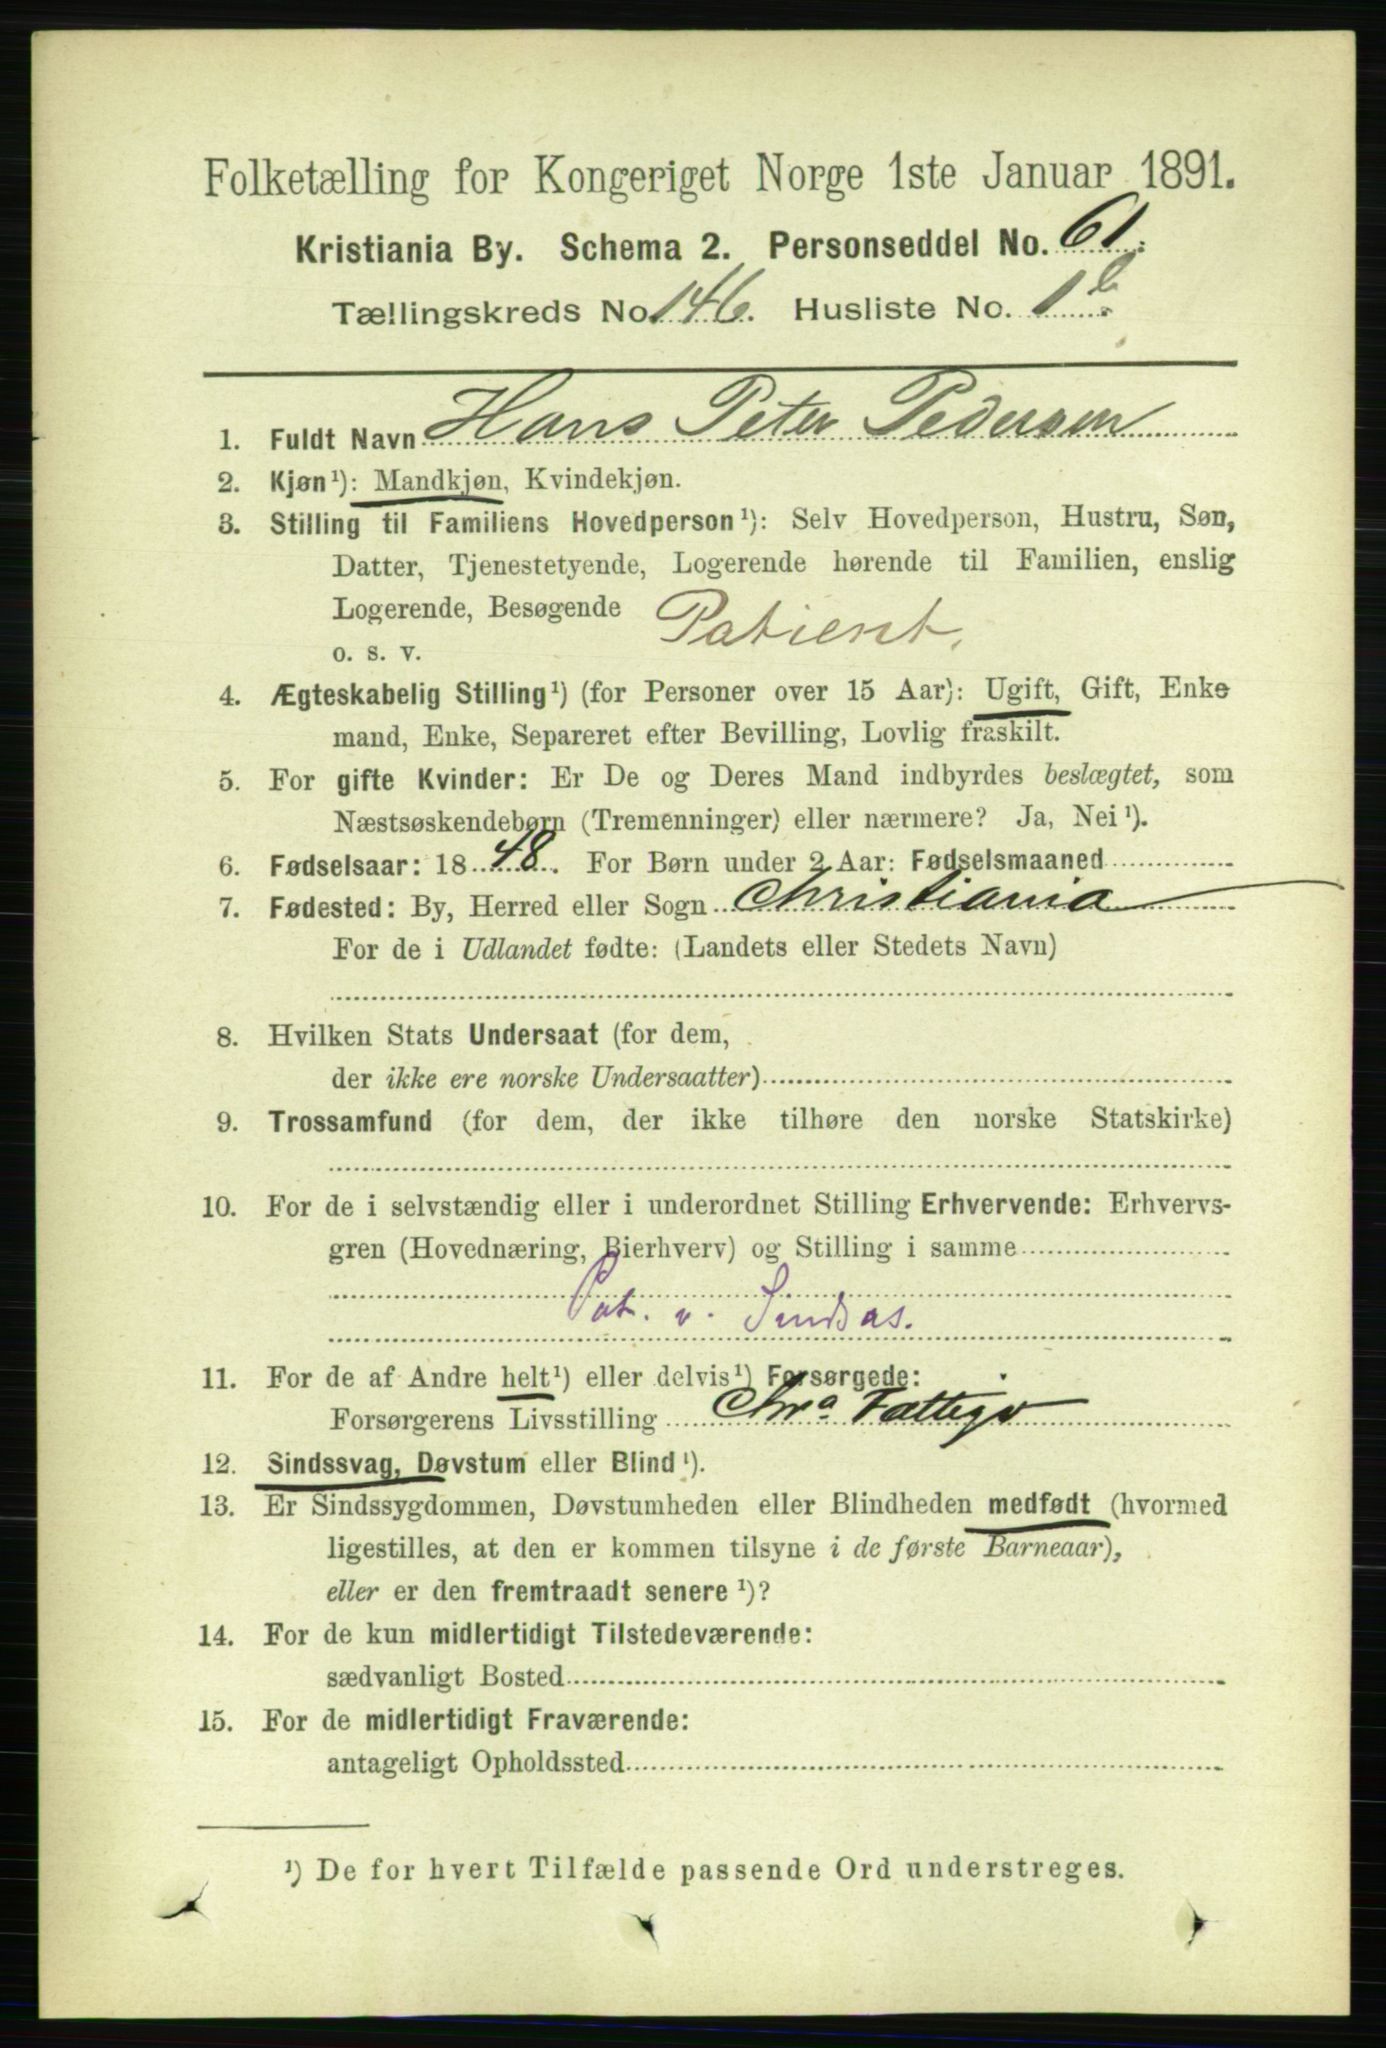 Folketælling for Kongeriget Norge 1ste Januar 1891.
Kristiania By. Schema 2. Personseddel No. 61.
Tællingskreds No. 146. Husliste No. 1b.
1. Fuldt Navn Hans Peter Pedersen
2. Kjøn¹): Mandkjøn, Kvindekjøn.
3. Stilling til Familiens Hovedperson¹): Selv Hovedperson, Hustru, Søn,
Datter, Tjenestetyende, Logerende hørende til Familien, enslig
Logerende, Besøgende Patient.
o. s. v.
4. Ægteskabelig Stilling¹) (for Personer over 15 Aar): Ugift, Gift, Enke
mand, Enke, Separeret efter Bevilling, Lovlig fraskilt.
5. For gifte Kvinder: Er De og Deres Mand indbyrdes beslægtet, som
Næstsøskendebørn (Tremenninger) eller nærmere? Ja, Nei¹).
6. Fødselsaar: 1848. For Børn under 2 Aar: Fødselsmaaned
7. Fødested: By, Herred eller Sogn Christiania
For de i Udlandet fødte: (Landets eller Stedets Navn)
8. Hvilken Stats Undersaat (for dem,
der ikke ere norske Undersaatter)
9. Trossamfund (for dem, der ikke tilhøre den norske Statskirke)
10. For de i selvstændig eller i underordnet Stilling Erhvervende: Erhvervs-
gren (Hovednæring, Bierhverv) og Stilling i samme
Pat. v. Sindsas.
11. For de af Andre helt¹) eller delvis¹) Forsørgede:
Forsørgerens Livsstilling Chra Fattigv
12. Sindssvag, Døvstum eller Blind¹).
13. Er Sindssygdommen, Døvstumheden eller Blindheden medfødt (hvormed
ligestilles, at den er kommen tilsyne i de første Barneaar),
eller er den fremtraadt senere¹)?
14. For de kun midlertidigt Tilstedeværende:
sædvanligt Bosted
15. For de midlertidigt Fraværende:
antageligt Opholdssted
¹) De for hvert Tilfælde passende Ord understreges.